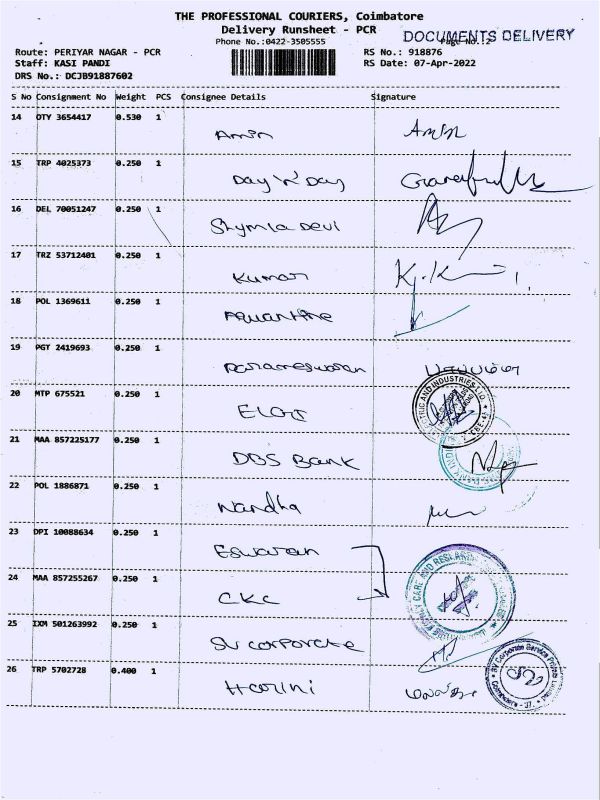 THE PROFESSIONAL COURIERS, Coimbatore
Delivery Runsheet - PCR
DOCUMENTS DELIVERY
Phone No.:0422-3505555
Page No.:2
Route: PERIYAR NAGAR - PCR
RS No.: 918876
Staff: KASI PANDI
RS Date: 07-Apr-2022
DRS No.: DCJB91887602
S No Consignment No Weight PCS Consignee Details Signature
14 OTY 3654417 0.530 1
Amin Amin
15 TRP 4025373 0.250 1
Day 'N' Day
16 DEL 70051247 0.250 1
Shymla Devi
17 TRZ 53712401 0.250 1
Kumar
18 POL 1369611 0.250 1
19 PGT 2419693 0.250 1
Parameswaran
20 MTP 675521 0.250 1
21 MAA 857225177 0.250 1
DBS Bank
22 POL 1886871 0.250 1
Nandha
23 DPI 10088634 0.250 1
Eswaran
24 MAA 857255267 0.250 1
CKC
25 IXM 501263992 0.250 1
SV Corporate
26 TRP 5702728 0.400 1
Harini